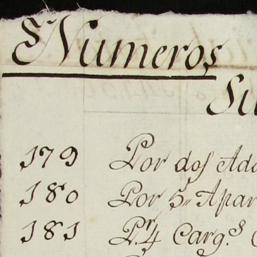 Numeros
Su
179 Por dos Ada
180 Por 5,, Apar
181 Pr. 4 Carg.s C